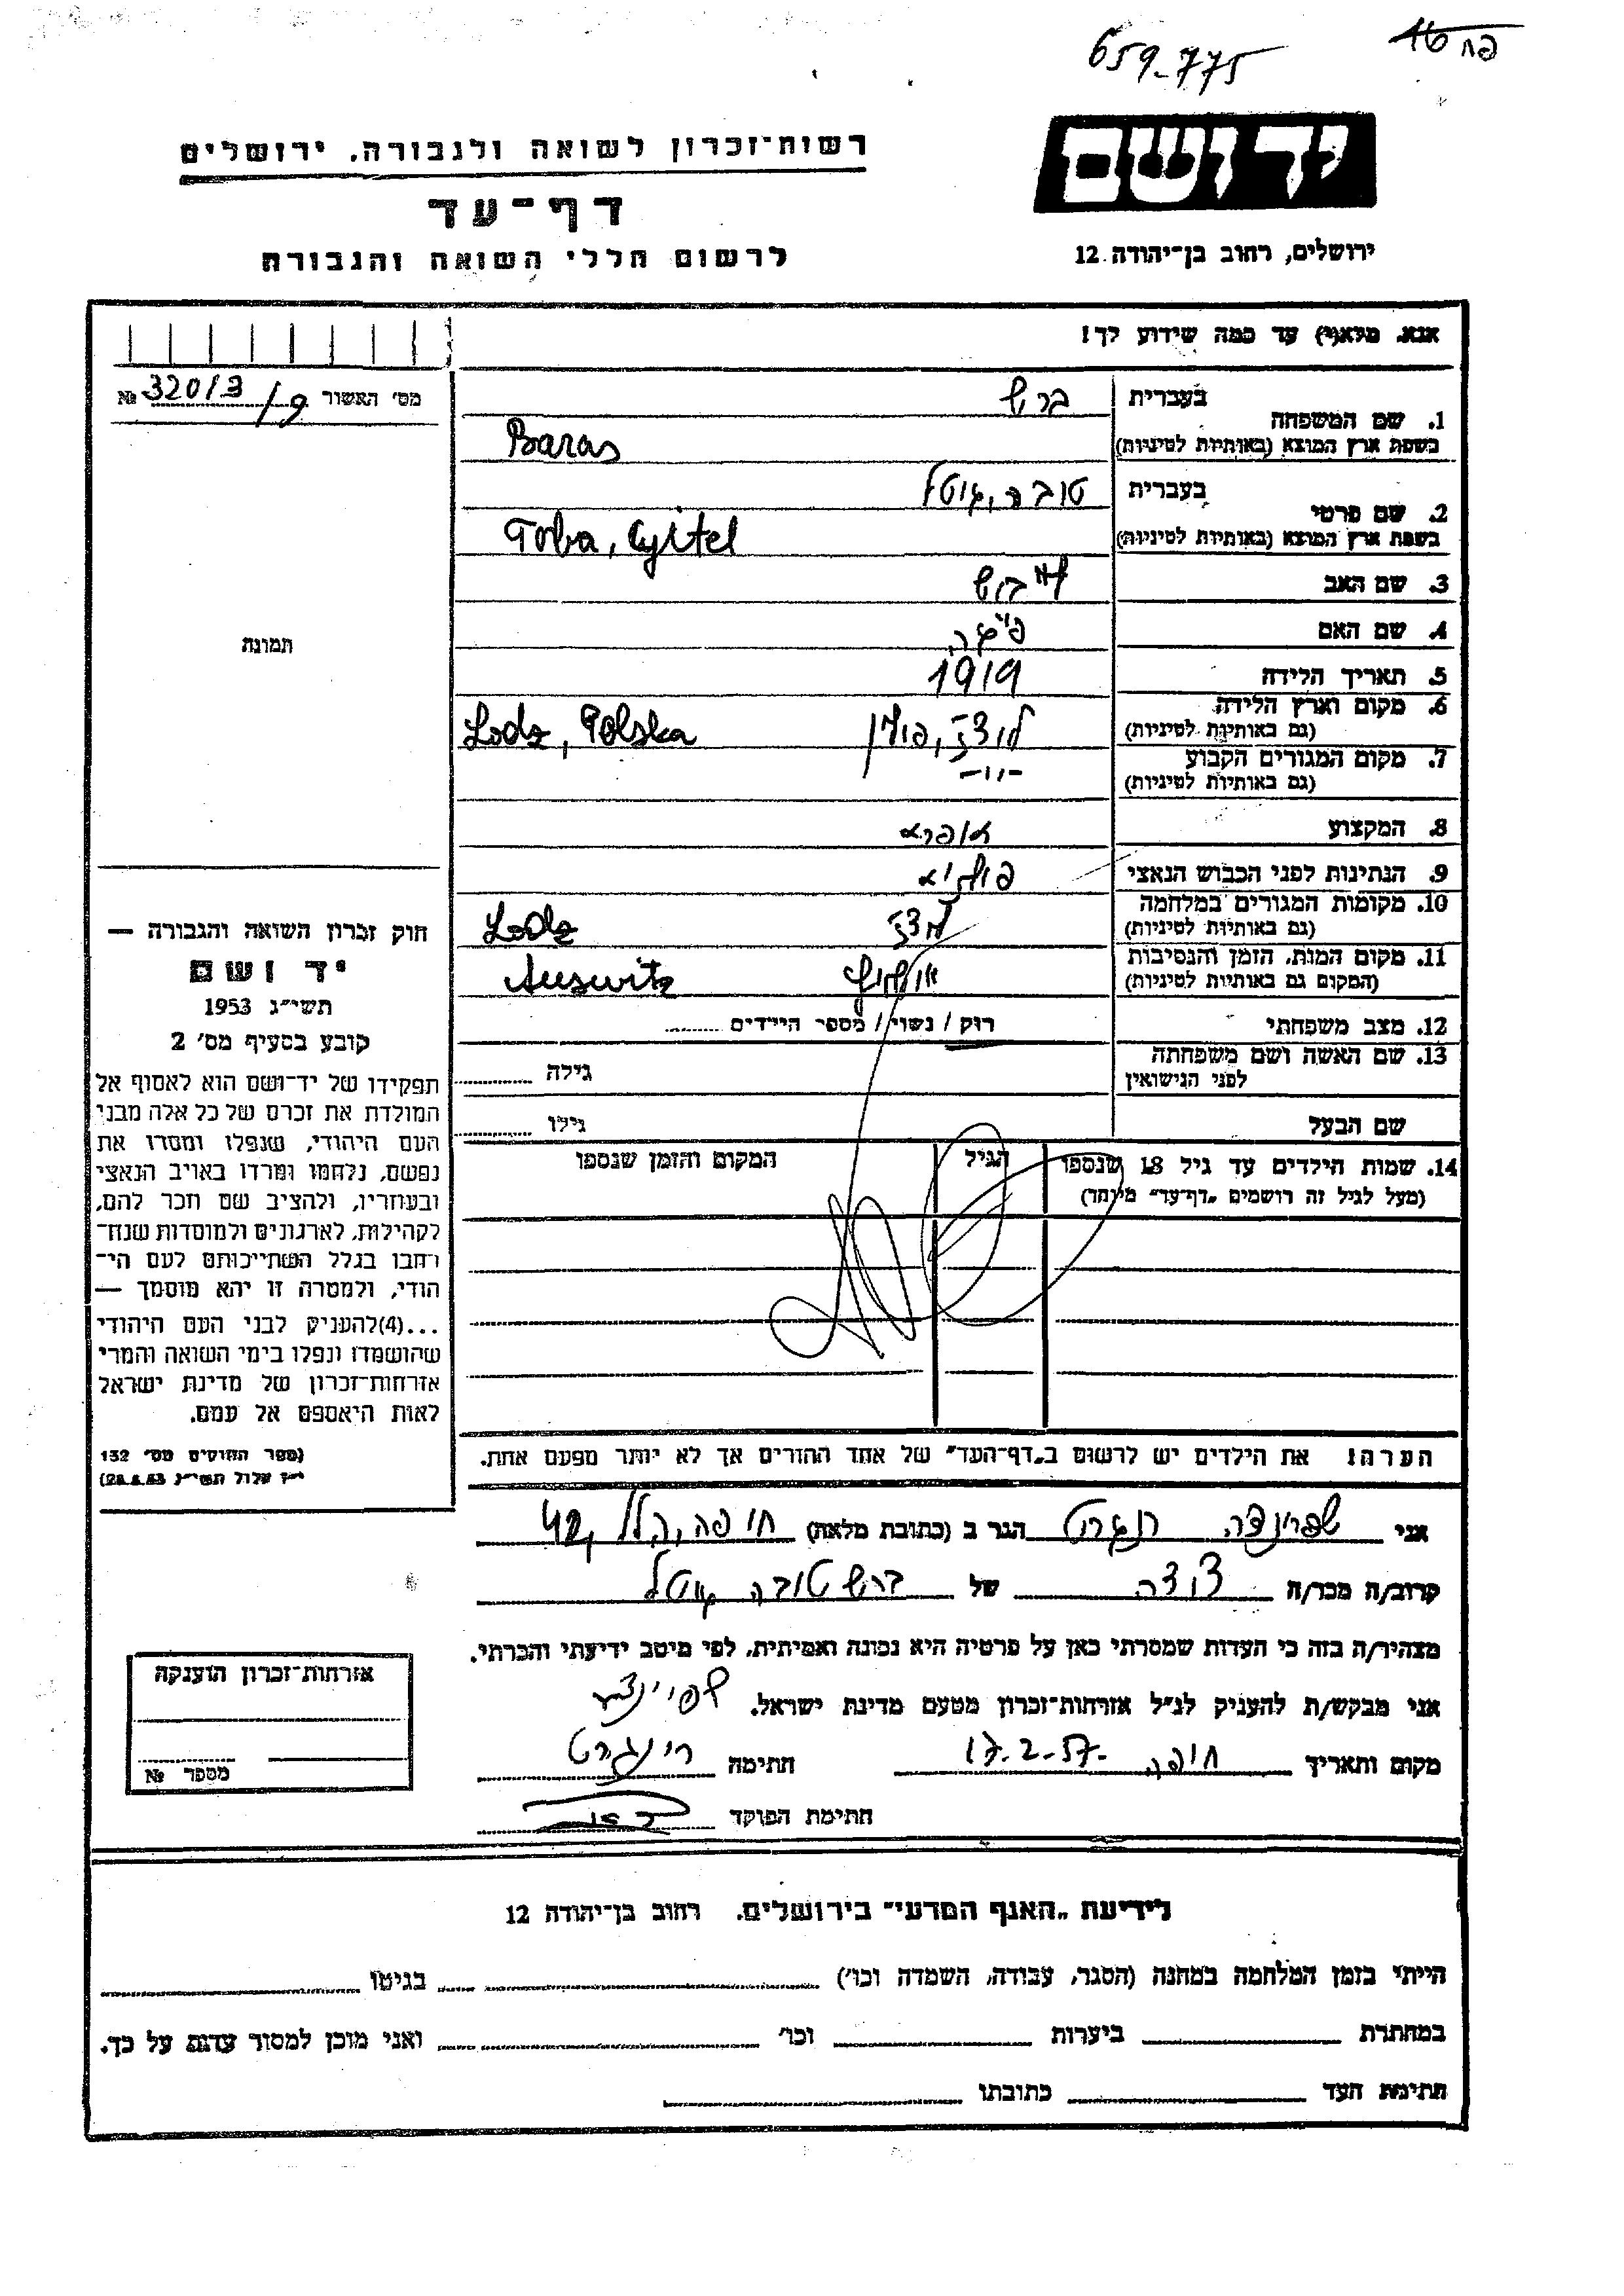 659-775
16 פח
יד ושם
ירושלים, רחוב בן־יהודה 12
רשות־זכרון לשואה ולגבורה, ירושלים
דף־עד
לרשום חללי השואה והגבורה
אנא, מלא(י) עד כמה שידוע לך!
מס' האשור 320/3/9 №
1. שם המשפחה בעברית ברש
בשפת ארץ המוצא (באותיות לטיניות) Baras
2. שם פרטי בעברית טובה, גיטל
בשפת ארץ המוצא (באותיות לטיניות) Toba, Gyitel
3. שם האב
4. שם האם פייגה
5. תאריך הלידה 1919
6. מקום וארץ הלידה (גם באותיות לטיניות) לודז, פולין Lodz, Polska
7. מקום המגורים הקבוע (גם באותיות לטיניות) -"-
8. המקצוע
9. הנתינות לפני הכבוש הנאצי
10. מקומות המגורים במלחמה (גם באותיות לטיניות) לודז Lodz
11. מקום המות, הזמן והנסיבות (המקום גם באותיות לטיניות) Auswitz
12. מצב משפחתי רוק / נשוי / מספר הילדים
13. שם האשה ושם משפחתה לפני הנישואין גילה
שם הבעל גילו
14. שמות הילדים עד גיל 18 שנספו הגיל המקום והזמן שנספו
(מעל לגיל זה רושמים „דף־עד" מיוחד)
הערה! את הילדים יש לרשום ב„דף־העד" של אחד ההורים אך לא יותר מפעם אחת.
תמונה
חוק זכרון השואה והגבורה —
יד ושם
תשי״ג 1953
קובע בסעיף מס' 2
תפקידו של יד־ושם הוא לאסוף אל
המולדת את זכרם של כל אלה מבני
העם היהודי, שנפלו ומסרו את
נפשם, נלחמו ומרדו באויב הנאצי
ובעוזריו, ולהציב שם וזכר להם,
לקהילות, לארגונים ולמוסדות שנח־
רבו בגלל השתייכותם לעם הי־
הודי, ולמטרה זו יהא מוסמך —
...(4) להעניק לבני העם היהודי
שהושמדו ונפלו בימי השואה והמרי
אזרחות־זכרון של מדינת ישראל
לאות היאספם אל עמם.
(ספר החוקים מס' 132
י״ז אלול תשי״ג 28.8.53)
אני שפרינצה הגר ב (כתובת מלאה) חיפה, הלל 42
קרוב/ה מכר/ה דודה של ברש טובה גיטל
מצהיר/ה בזה כי העדות שמסרתי כאן על פרטיה היא נכונה ואמיתית, לפי מיטב ידיעתי והכרתי.
אני מבקש/ת להעניק לנ״ל אזרחות־זכרון מטעם מדינת ישראל.
מקום ותאריך חיפה 17.2.57 חתימה שפרינצה רינגרט
חתימת הפוקד
אזרחות־זכרון הוענקה
מספר №
לידיעת „האגף המדעי" בירושלים, רחוב בן־יהודה 12
הייתי בזמן המלחמה במחנה (הסגר, עבודה, השמדה וכו') בגיטו
במחתרת ביערות וכו' ואני מוכן למסור עדות על כך.
חתימת העד כתובתו